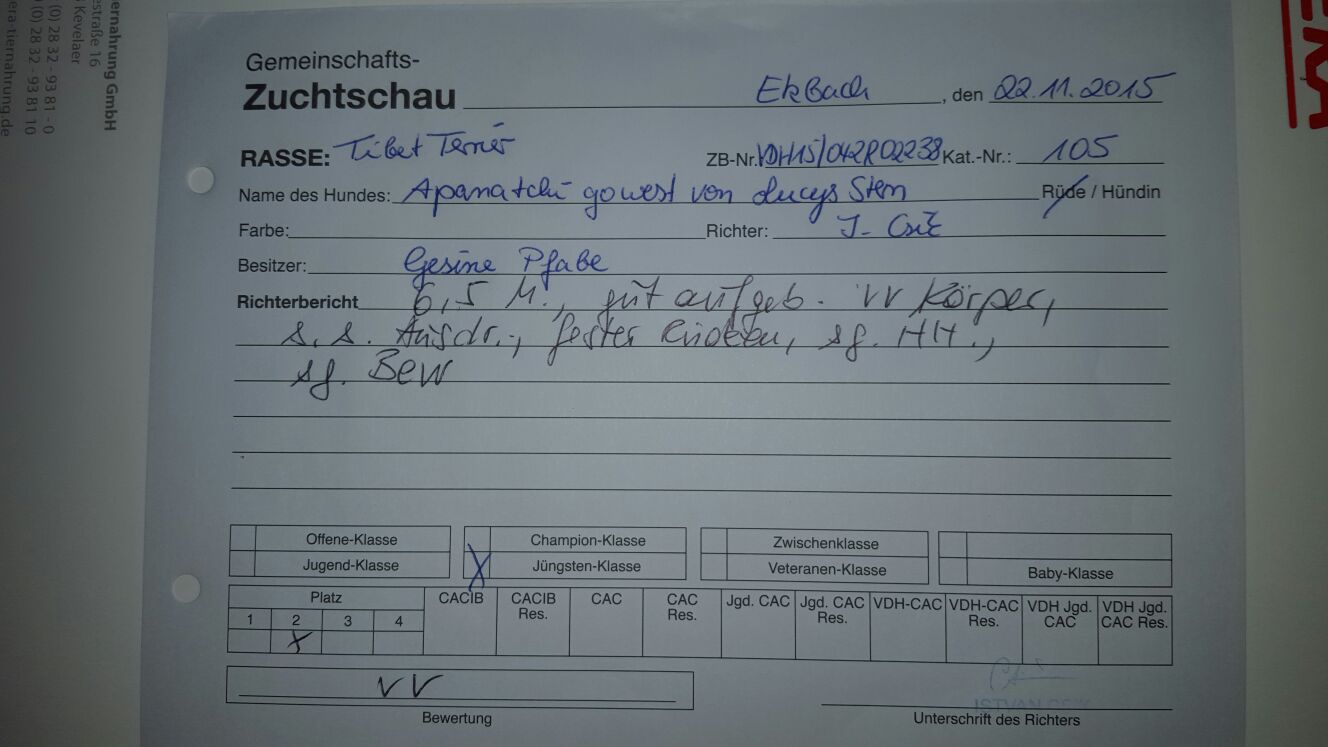 ernährung GmbH
estraße 16
Kevelaer
(0) 28 32 - 93 81 - 0
(0) 28 32 - 93 81 10
era-tiernahrung.de
Gemeinschafts-
Zuchtschau Ekbach, den 22.11.2015
RASSE: Tibet Terrier ZB-Nr. VDH15/042R02238 Kat.-Nr.: 105
Name des Hundes: Apanatchi gowest von Lucys Stern Rüde / Hündin
Farbe: Richter: I. Csik
Besitzer: Gesine Pfabe
Richterbericht 6,5 M., gut aufgeb. VV Körper,
s. s. Ausdr., fester Rücken, sg. HH.,
sg. Bew
Offene-Klasse Champion-Klasse Zwischenklasse
Jugend-Klasse X Jüngsten-Klasse Veteranen-Klasse Baby-Klasse
Platz CACIB CACIB Res. CAC CAC Res. Jgd. CAC Jgd. CAC Res. VDH-CAC VDH-CAC Res. VDH Jgd. CAC VDH Jgd. CAC Res.
1 2 3 4
X
VV
ISTVAN
Bewertung Unterschrift des Richters